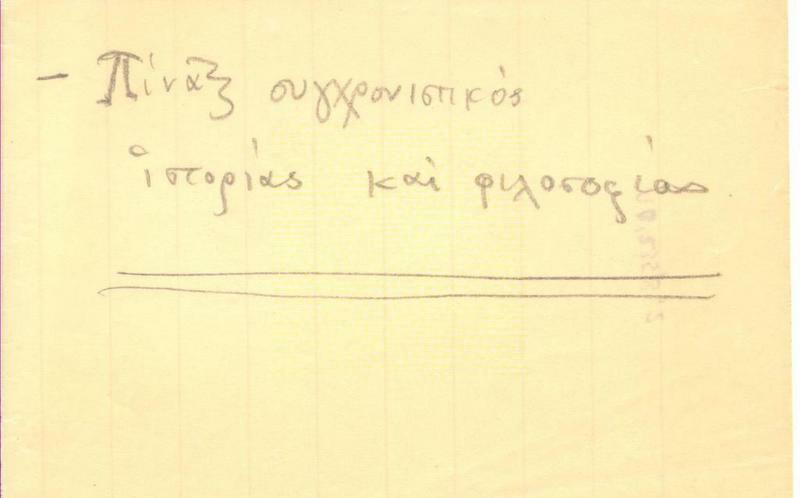 - Πίναξ συγχρονιστικός
ἱστορίας καὶ φιλοσοφίας